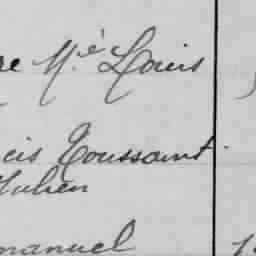 re M.é Louis
cis Toussaint
Julien
manuel